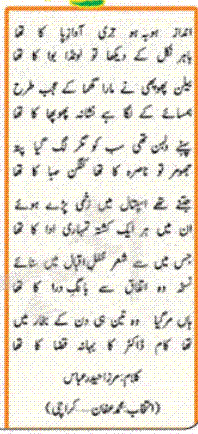 انداز ہو بہو تری آواز پا کا تھا
باہر نکل کے دیکھا تو لونڈا بوا کا تھا
بیلن پھوپھی نے مارا گھما کے عجب طرح
ہمسائے کے لگا ہے نشانہ پھوپھا کا تھا
پہنے دلہن تھی سب کو مگر لگ گیا پتہ
جھومر تو ناصرہ کا تھا کنگن صبا کا تھا
جتنے تھے اسپتال میں زخمی پڑے ہوئے
ان میں ہر ایک کشتہ تمہاری ادا کا تھا
جس میں سے شعر محفل اقبال میں سنائے
نسخہ وہ اتفاق سے بانگ درا کا تھا
ہاں مر گیا وہ تین ہی دن کے بخار میں
تھا کام ڈاکٹر کا بہانہ قضا کا تھا
کلام: مرزا حیدر عباس
(انتخاب: محمد عفان.... کراچی)